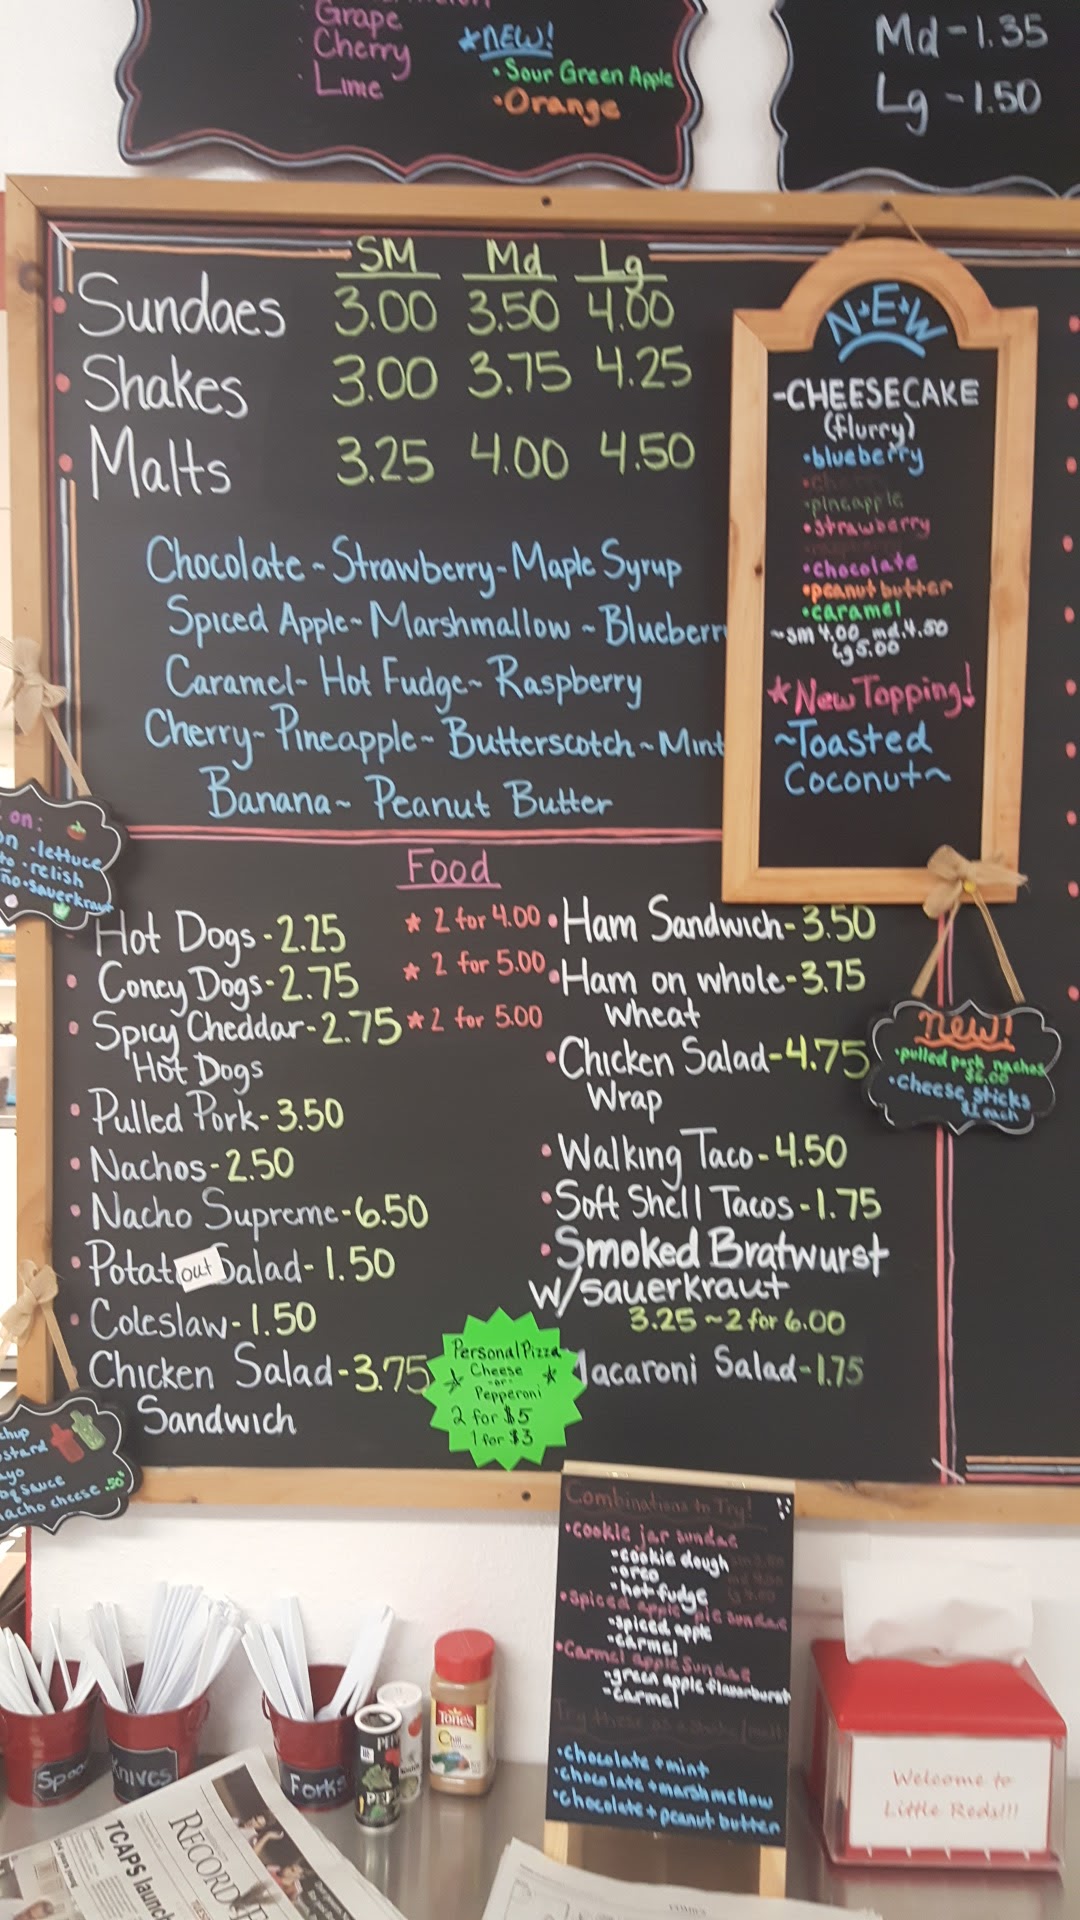 Grape
Cherry
Lime
*NEW!
• Sour Green Apple
• Orange
Md - 1.35
Lg - 1.50
SM Md Lg
Sundaes 3.00 3.50 4.00
Shakes 3.00 3.75 4.25
Malts 3.25 4.00 4.50
Chocolate ~ Strawberry ~ Maple Syrup
Spiced Apple ~ Marshmallow ~ Blueberry
Caramel ~ Hot Fudge ~ Raspberry
Cherry ~ Pineapple ~ Butterscotch ~ Mint
Banana ~ Peanut Butter
N•E•W
-CHEESECAKE
(flurry)
•blueberry
•cherry
•pineapple
•strawberry
•raspberry
•chocolate
•peanut butter
•caramel
~sm 4.00 md.4.50
Lg 5.00
*New Topping!
~Toasted
Coconut~
on:
•lettuce
•relish
•sauerkraut
Food
Hot Dogs - 2.25 * 2 for 4.00
• Coney Dogs - 2.75 * 2 for 5.00
• Spicy Cheddar - 2.75 * 2 for 5.00
Hot Dogs
• Pulled Pork - 3.50
• Nachos - 2.50
• Nacho Supreme - 6.50
• Potat out Salad - 1.50
• Coleslaw - 1.50
Chicken Salad - 3.75
Sandwich
• Ham Sandwich - 3.50
• Ham on whole - 3.75
wheat
• Chicken Salad - 4.75
Wrap
• Walking Taco - 4.50
• Soft Shell Tacos - 1.75
• Smoked Bratwurst
w/sauerkraut
3.25 ~ 2 for 6.00
acaroni Salad - 1.75
new!
•pulled pork nachos
$6.00
•cheese sticks
$1 each
Personal Pizza
* Cheese *
-or-
Pepperoni
2 for $5
1 for $3
chup
stard
ayo
sauce
nacho cheese .50
Combinations to Try!
•cookie jar sundae
•cookie dough
•oreo
•hot fudge
•spiced apple pie sundae
•spiced apple
•carmel
•Carmel apple Sundae
•green apple flavorburst
•carmel
Try these as a shake/malt
•chocolate + mint
•chocolate + marshmellow
•chocolate + peanut butter
Spoo
Knives
Forks
Tone's
Chili
Welcome to
Little Reds!!!
TCAPS launch
RECORD